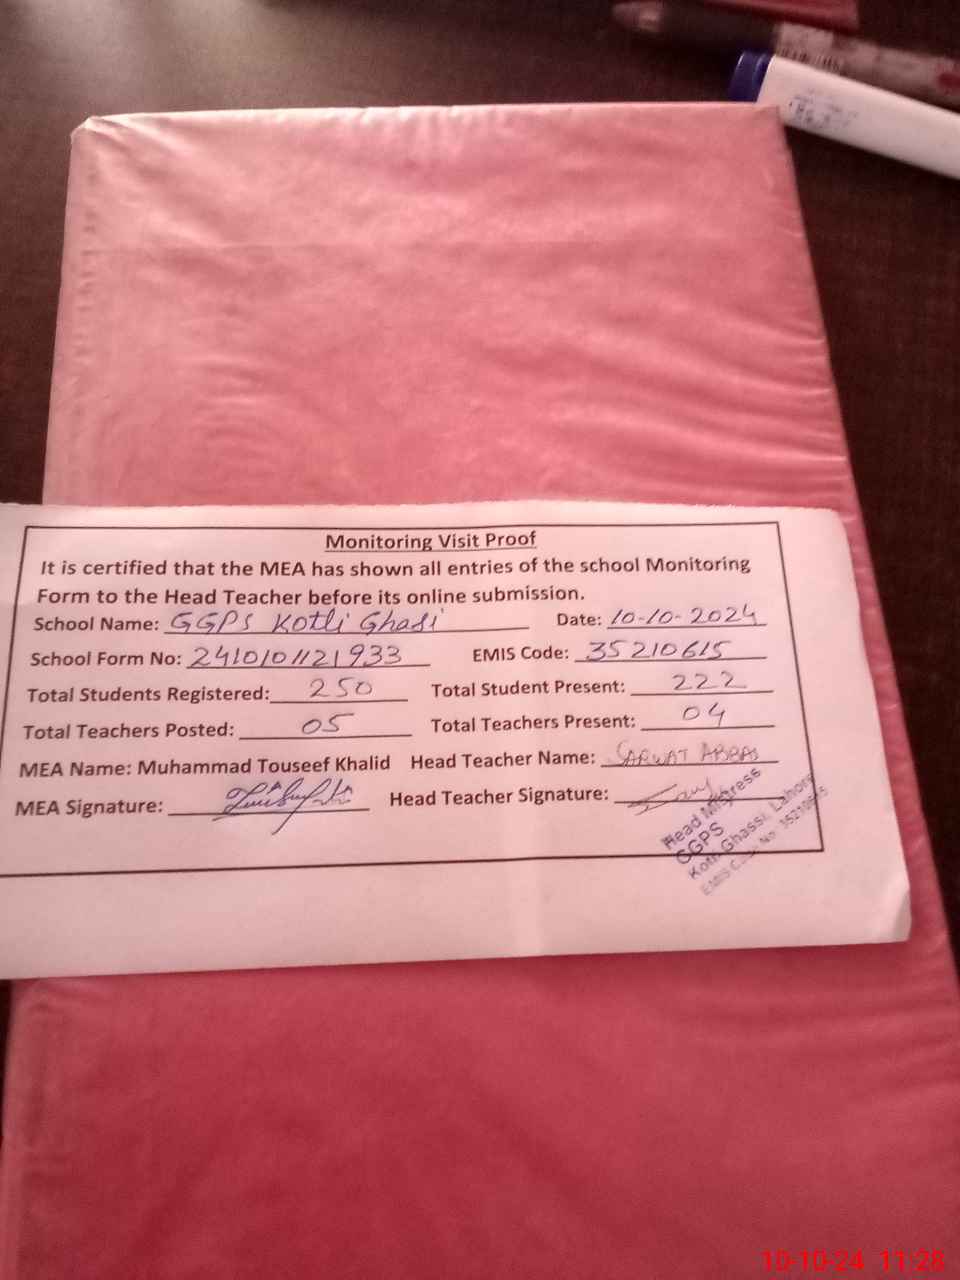 Monitoring Visit Proof
It is certified that the MEA has shown all entries of the school Monitoring
Form to the Head Teacher before its online submission.
School Name: GGPS Kotli Ghasi Date: 10-10-2024
School Form No: 2410101121933 EMIS Code: 35210615
Total Students Registered: 250 Total Student Present: 222
Total Teachers Posted: 05 Total Teachers Present: 04
MEA Name: Muhammad Touseef Khalid Head Teacher Name: SARWAT ABBAS
MEA Signature: Head Teacher Signature:
Head Mistress
GGPS
Kotli Ghassi, Lahore
EMIS Code No.
10-10-24 11:28